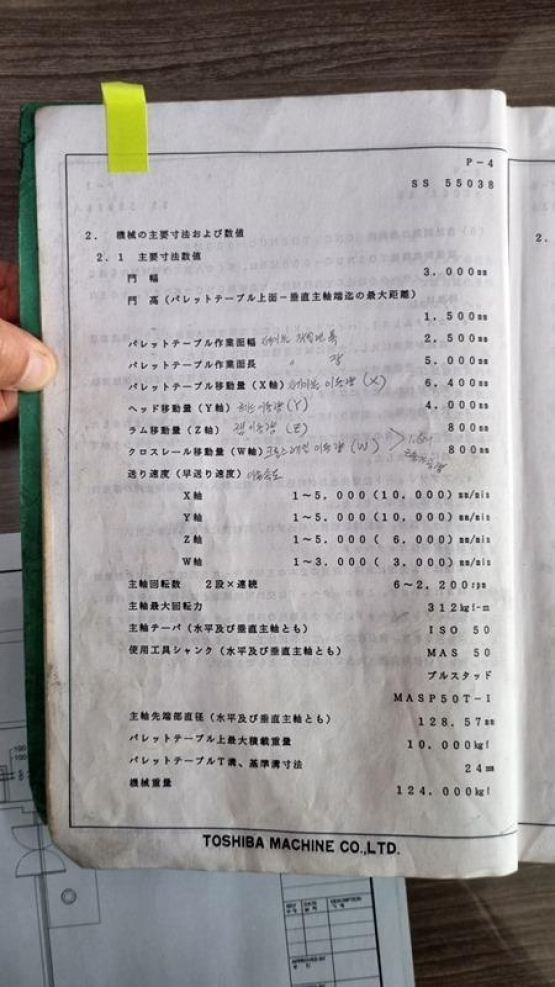 P-4
SS 55038
2. 機械の主要寸法および数値
2.1 主要寸法数値
門 幅 3,000mm
門 高(パレットテーブル上面-垂直主軸端迄の最大距離)
1,500mm
パレットテーブル作業面幅 2,500mm
パレットテーブル作業面長 〃 장 5,000mm
パレットテーブル移動量(X軸) 테이블 이동량 (X) 6,400mm
ヘッド移動量(Y軸) 헤드 이동량 (Y) 4,000mm
ラム移動量(Z軸) 램 이동량 (Z) 800mm
クロスレール移動量(W軸) 크로스레일 이동량 (W) 800mm
送り速度(早送り速度) 이송속도
X軸 1~5,000(10,000)mm/min
Y軸 1~5,000(10,000)mm/min
Z軸 1~5,000( 6,000)mm/min
W軸 1~3,000( 3,000)mm/min
主軸回転数 2段×連続 6~2,200rpm
主軸最大回転力 312kgf-m
主軸テーパ(水平及び垂直主軸とも) ISO 50
使用工具シャンク(水平及び垂直主軸とも) MAS 50
プルスタッド
MASP50T-I
主軸先端部直径(水平及び垂直主軸とも) 128.57mm
パレットテーブル上最大積載重量 10,000kgf
パレットテーブルT溝、基準溝寸法 24mm
機械重量 124,000kgf
TOSHIBA MACHINE CO.,LTD.
2.
DATE
DESCRIPTION
APPROVED BY